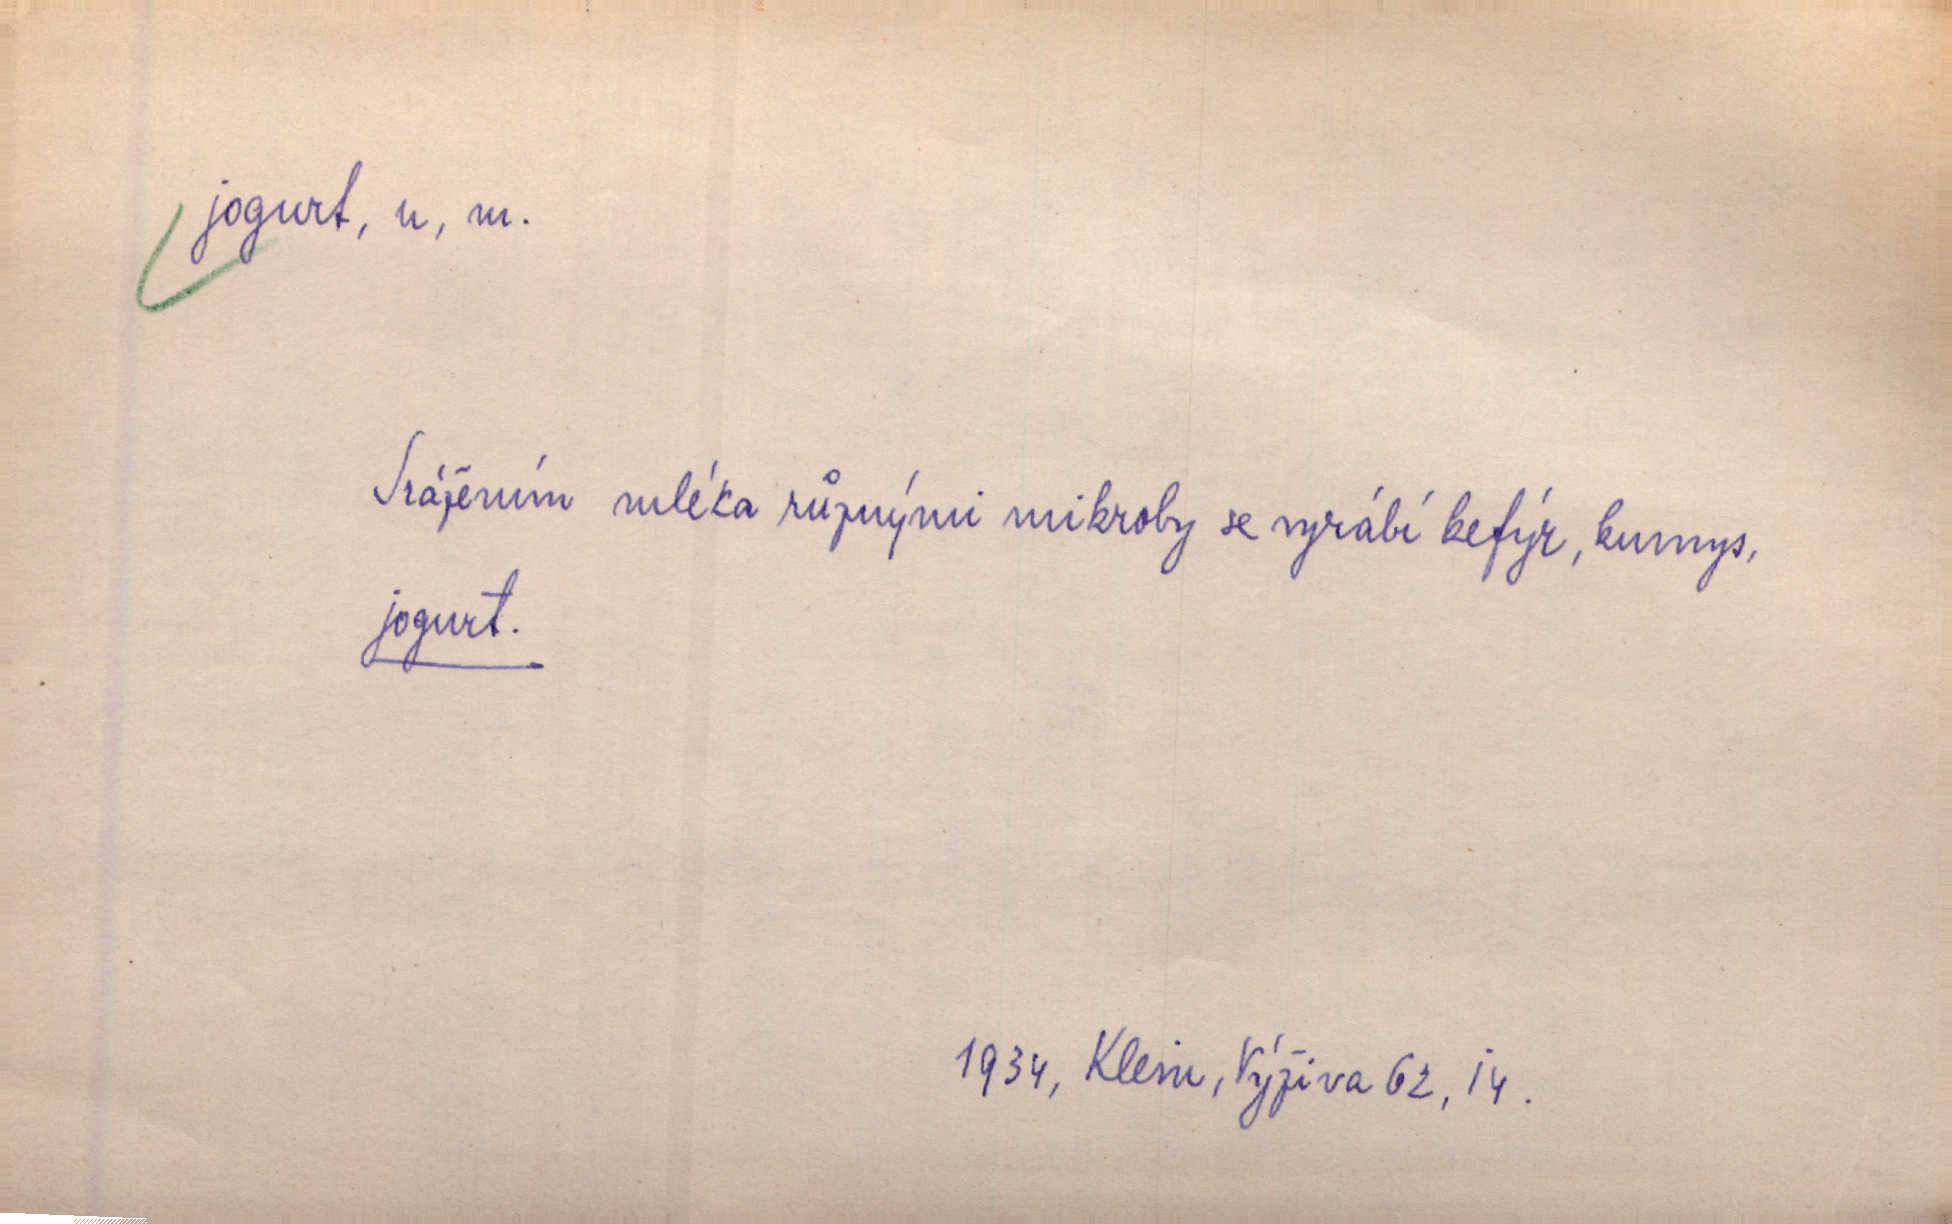 jogurt, u, m.
Srážením mléka různými mikroby se vyrábí kefýr, kumys,
jogurt.
1934, Klein, Výživa 62, i4.